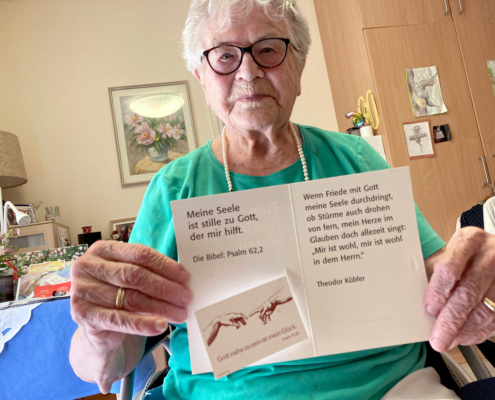 Meine Seele
ist stille zu Gott,
der mir hilft.
Die Bibel: Psalm 62,2
Gott nahe zu sein ist mein Glück.
Wenn Friede mit Gott
meine Seele durchdringt,
ob Stürme auch drohen
von fern, mein Herze im
Glauben doch allezeit singt:
„Mir ist wohl, mir ist wohl
in dem Herrn.“
Theodor Kübler